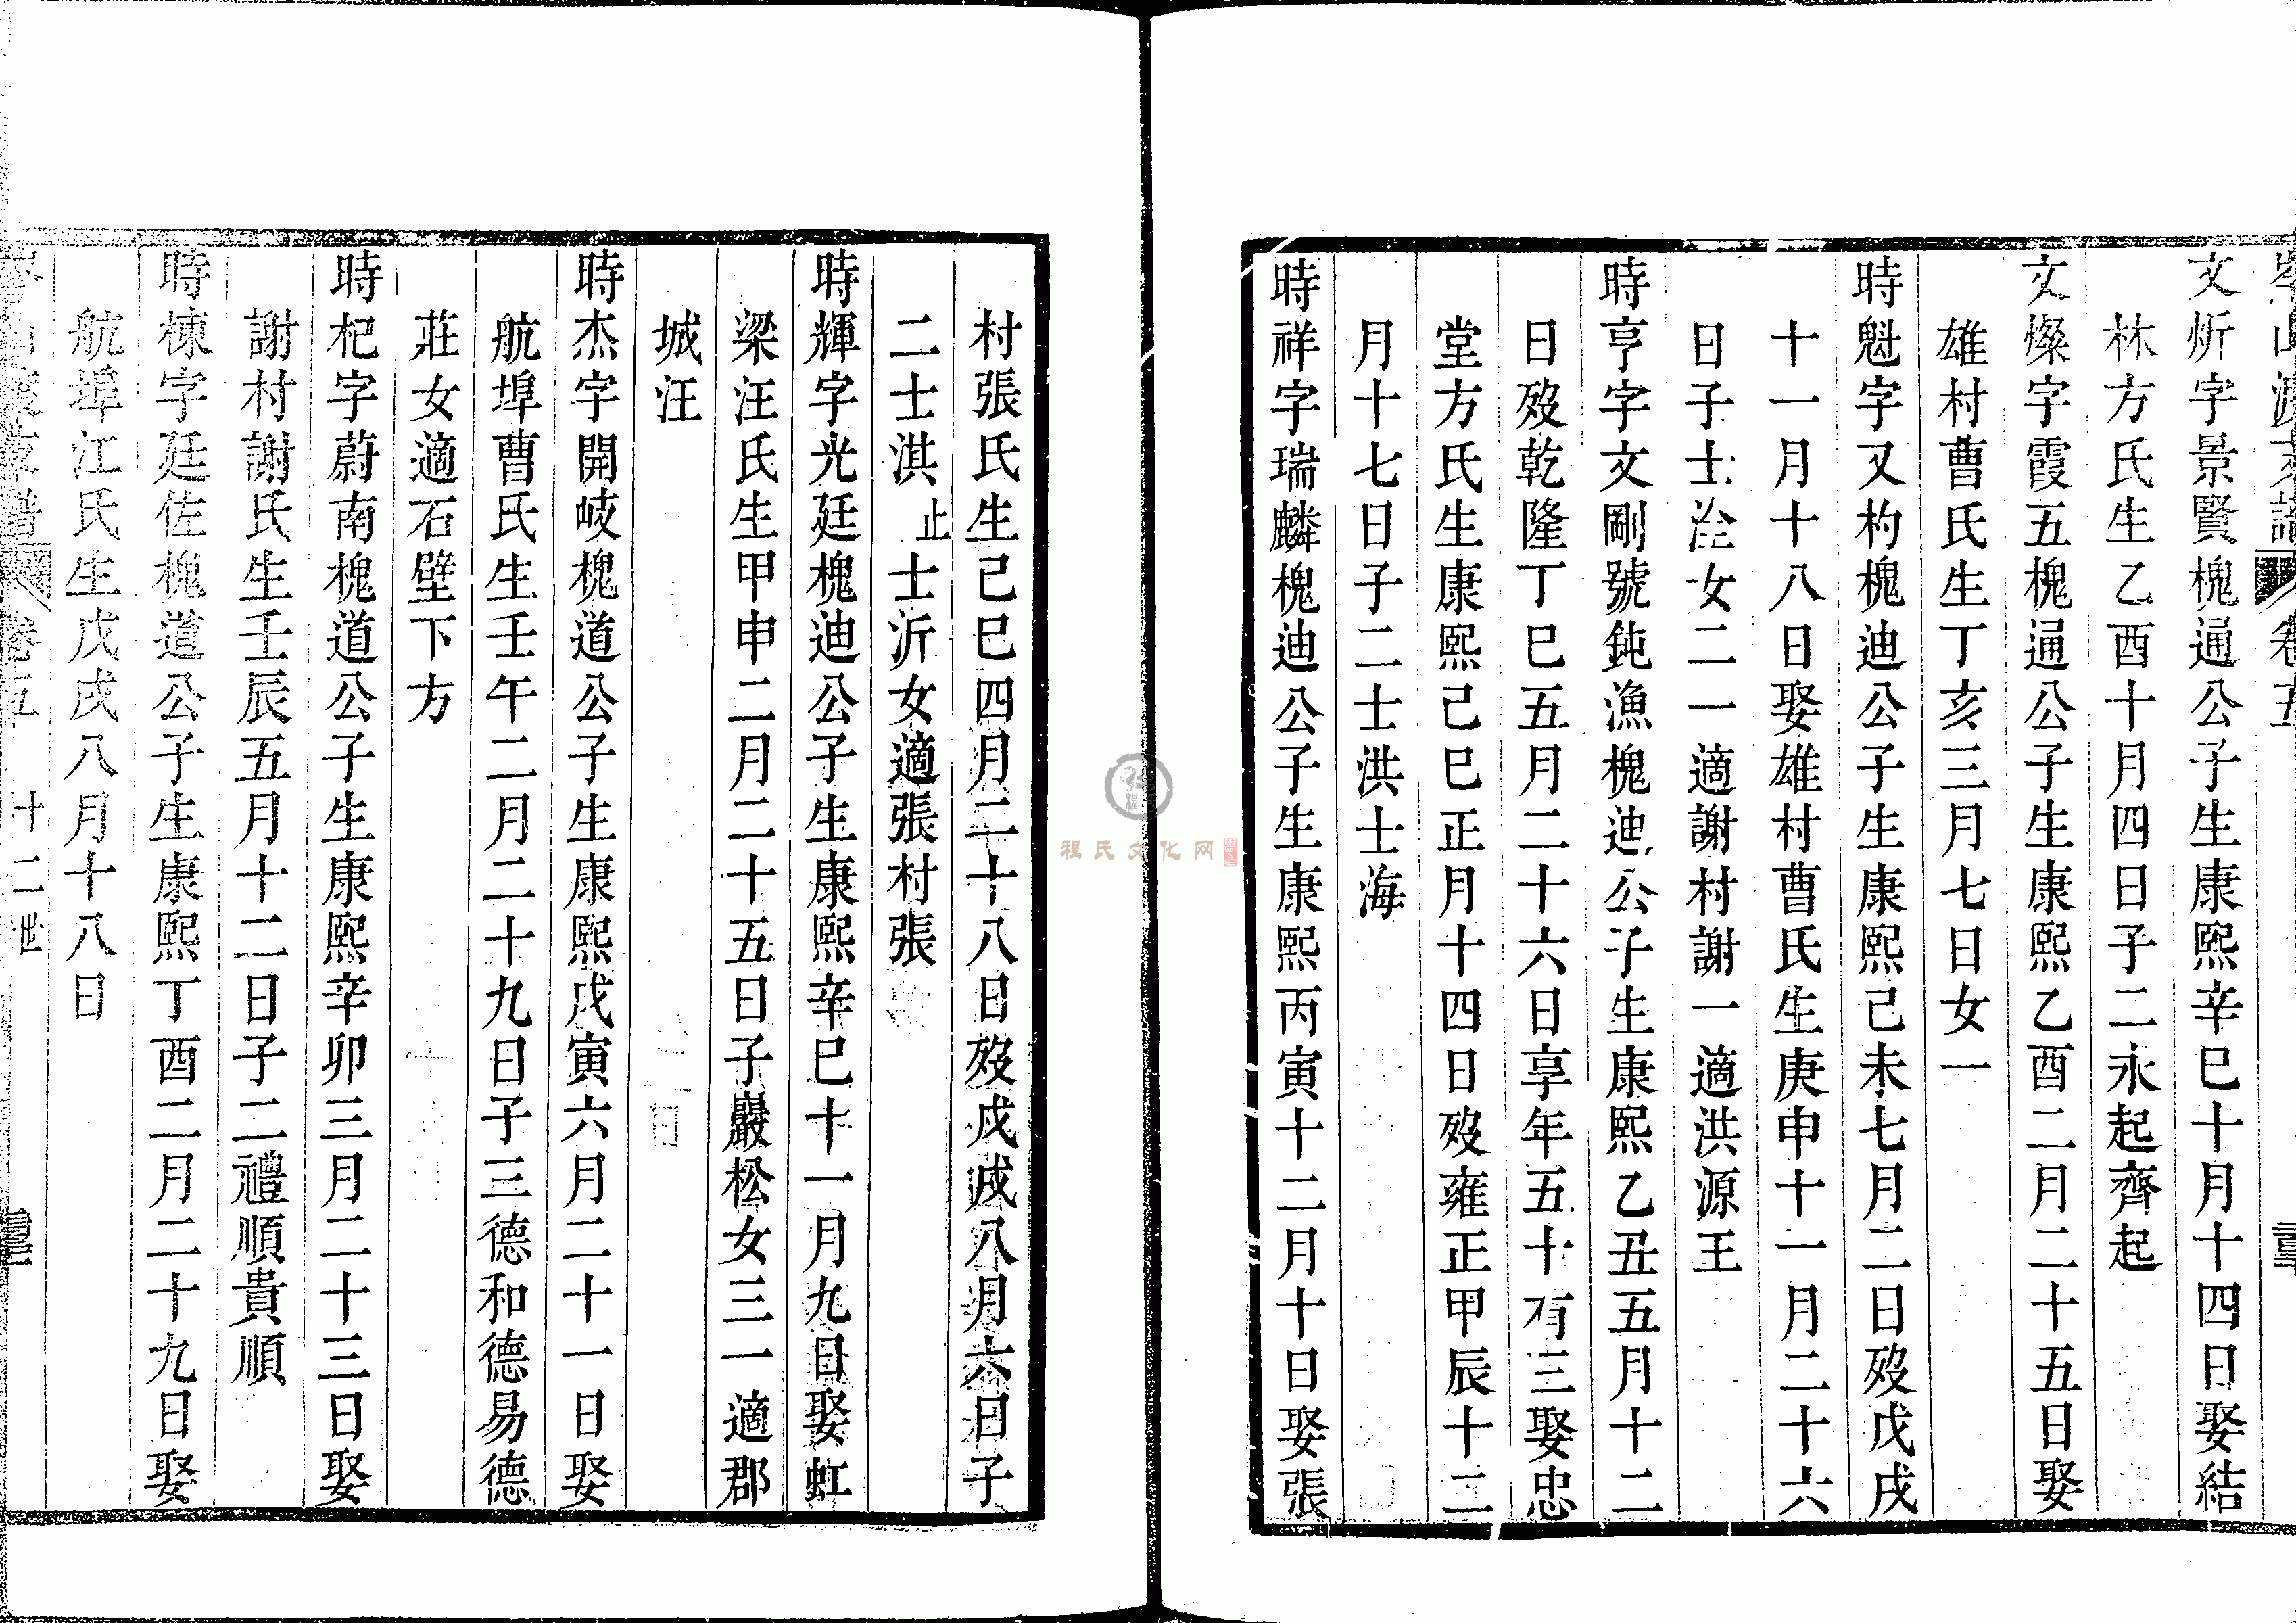 卷五
文炘字景賢槐通公子生康熙辛巳十月十四日娶結
林方氏生乙酉十月四日子二永起齊起
文燦字霞五槐逼公子生康熙乙酉二月二十五日娶
雄村曹氏生丁亥三月七日女一
時魁字又杓槐迪公子生康熙己未七月二日歿戊戌
十一月十八日娶雄村曹氏生庚申十一月二十六
日子士淦女二一適謝村謝一適洪源王
時亨字文剛號鈍漁槐迪公子生康熙乙丑五月十二
日歿乾隆丁巳五月二十六日享年五十有三娶忠
堂方氏生康熙己巳正月十四日歿雍正甲辰十二
月十七日子二士洪士海
時祥字瑞麟槐迪公子生康熙丙寅十二月十日娶張
村張氏生己巳四月二十八日歿戊戌八月六日子
二士淇止士沂女適張村張
時輝字光廷槐迪公子生康熙辛巳十一月九日娶虹
梁汪氏生甲申二月二十五日子巖松女三一適郡
城汪
時杰字開岐槐道公子生康熙戊寅六月二十一日娶
航埠曹氏生壬午二月二十九日子三德和德易德
莊女適石壁下方
時杞字蔚南槐道公子生康熙辛卯三月二十三日娶
謝村謝氏生壬辰五月十二日子二禮順貴順
時棟字廷佐槐道公子生康熙丁酉二月二十九日娶
航埠江氏生戊戌八月十八日
支譜 卷五 十二世
程氏文化网